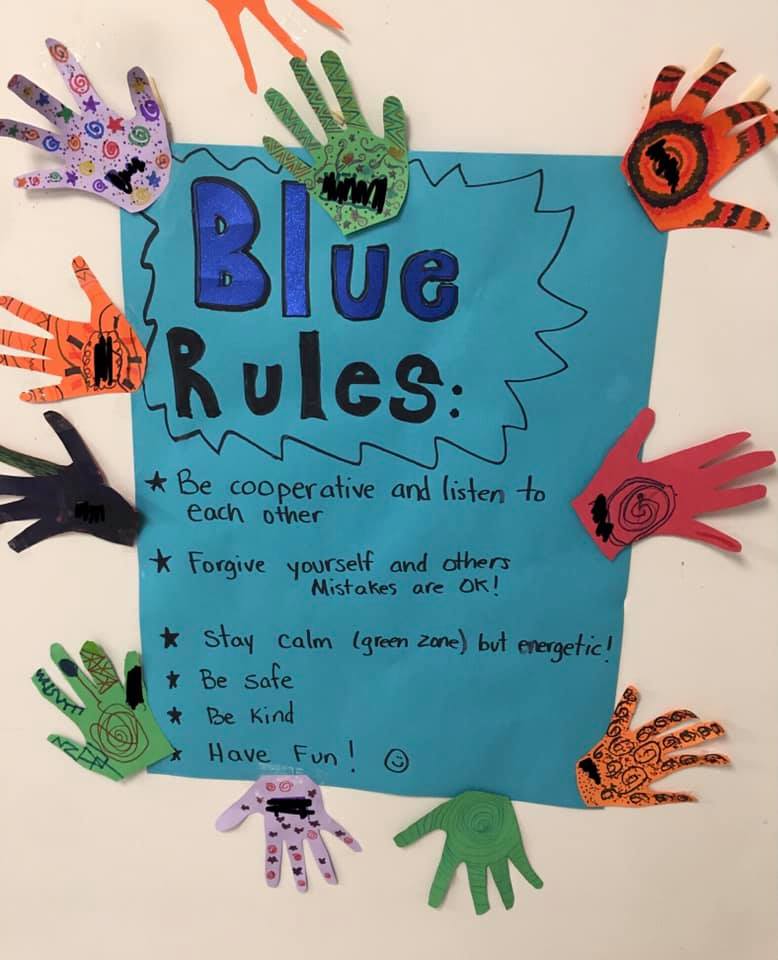 Blue
Rules:
★ Be cooperative and listen to
each other
★ Forgive yourself and others
Mistakes are OK!
★ Stay calm (green zone) but energetic!
★ Be safe
★ Be Kind
★ Have Fun! ☺